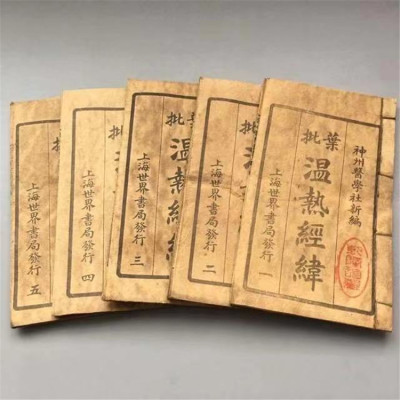 神州醫學社新編
葉批
溫熱經緯
上海世界書局發行 一
批
上海世界書局發行 二
批
溫熱經緯
上海世界書局發行 三
批
上海世界書局發行 四
批
上海世界書局發行 五